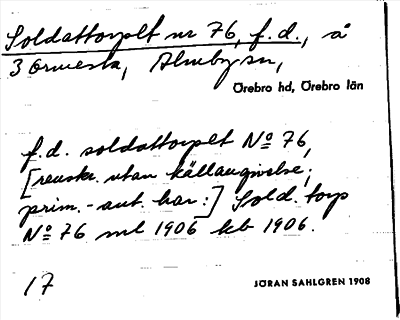 Soldattorpet nr 76, f.d., å
3 Ormesta, Almby sn,
Örebro hd, Örebro län
f.d. soldattorpet No 76,
[renskr. utan källangivelse;
prim.-aut. har:] Sold. torp
No 76 ml 1906 kb 1906.
17
JÖRAN SAHLGREN 1908